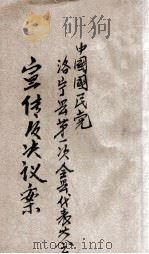 中國國民党
洛宁县第一次全县代表大会
宣传及决议案